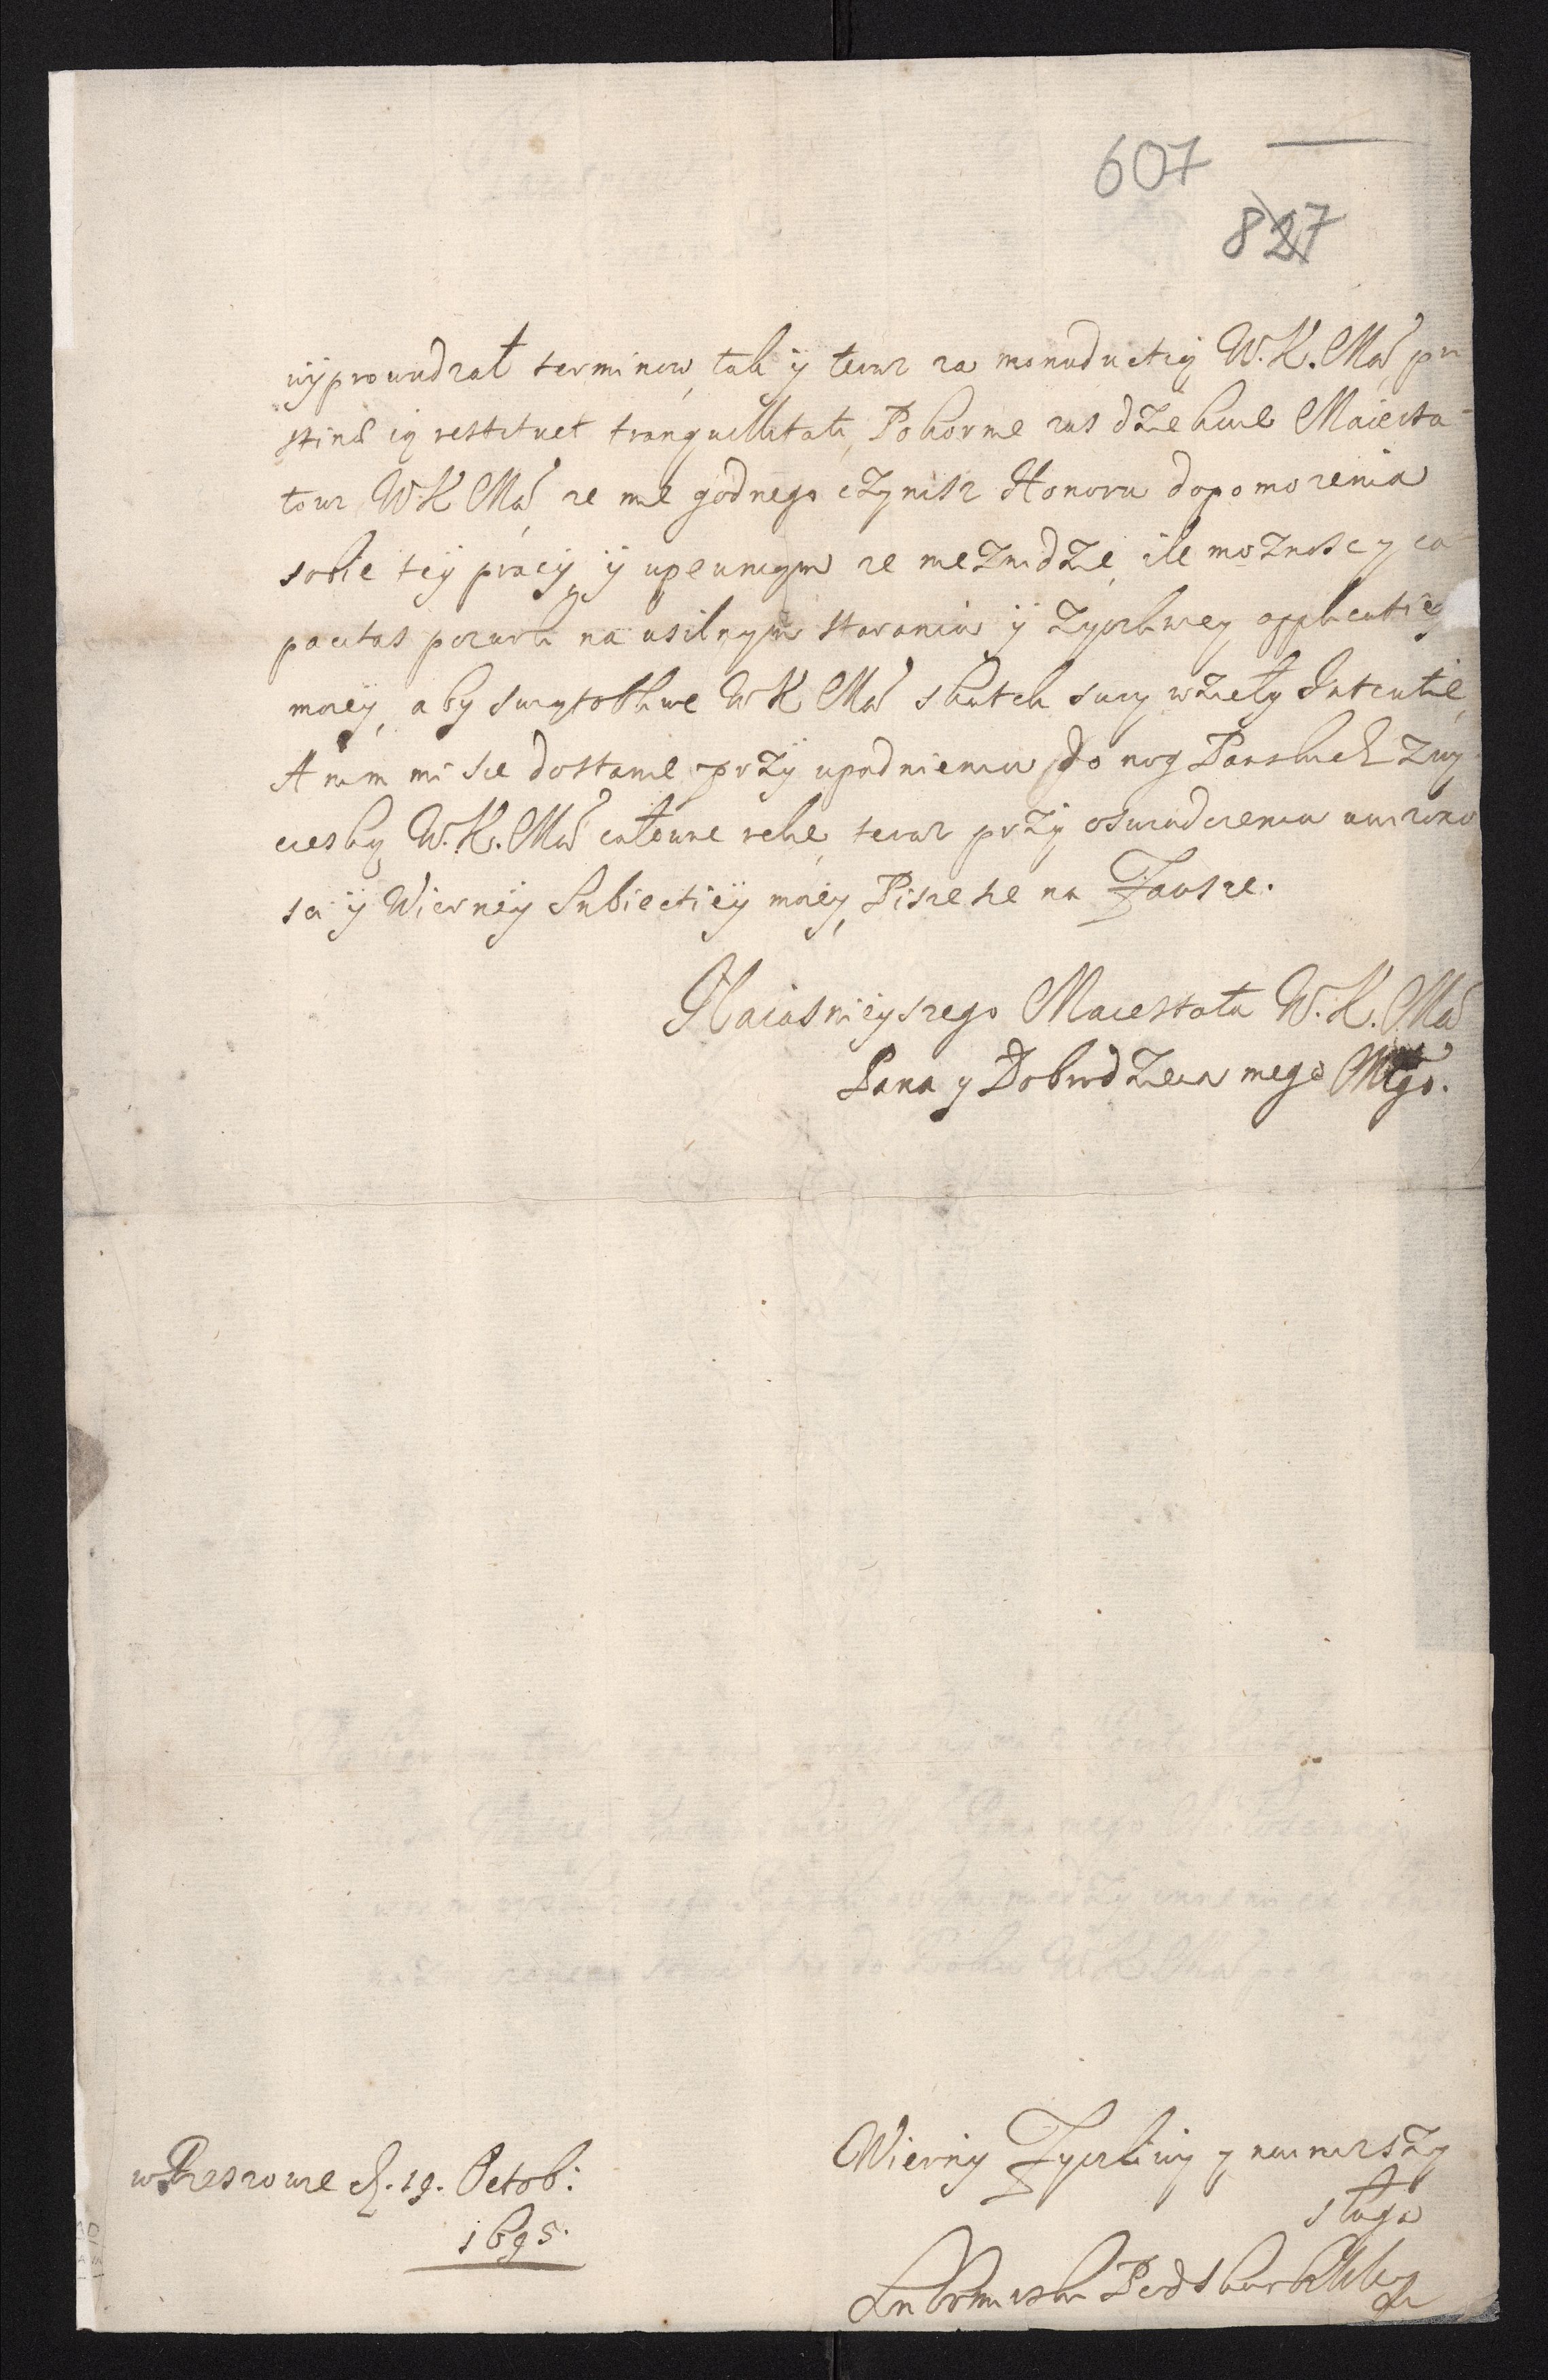 607
827
wyprowadzał terminow, tak ÿ teraz za manuductią W. K. Mći pri
stinæ ią restituet tranquillitati, Pokornie zas dziękuię Maiesta
towi W K Mći ze mię godnego czynisz Honoru dopomozenia
sobie tey pracy, ÿ upewniam ze nieznidzie, ile moznosc y ca
pacitas pozwoli na usilnym staraniu ÿ zyczliwey applicatiey
moiey, aby swiątobliwe W K Mći skutek swoy wzieły Intentie,
A nim mi sie dostanie przÿ upadnieniu do nog Panskich zwy
cieską W. K. Mći całowac rękę, teraz przÿ oswiadczeniu unizono
sci ÿ Wierneÿ Subiectieÿ moieÿ, Piszę sie na Zawsze.
Naiasnieyszego Maiestatu W. K. Mći
Pana y Dobrodzieia mego Młgo.
w Rzeszowie d. 19. Octob:
1695.
Wierny Zyczliwy y naynizszy
sługa
Lubomirski Podskarbi